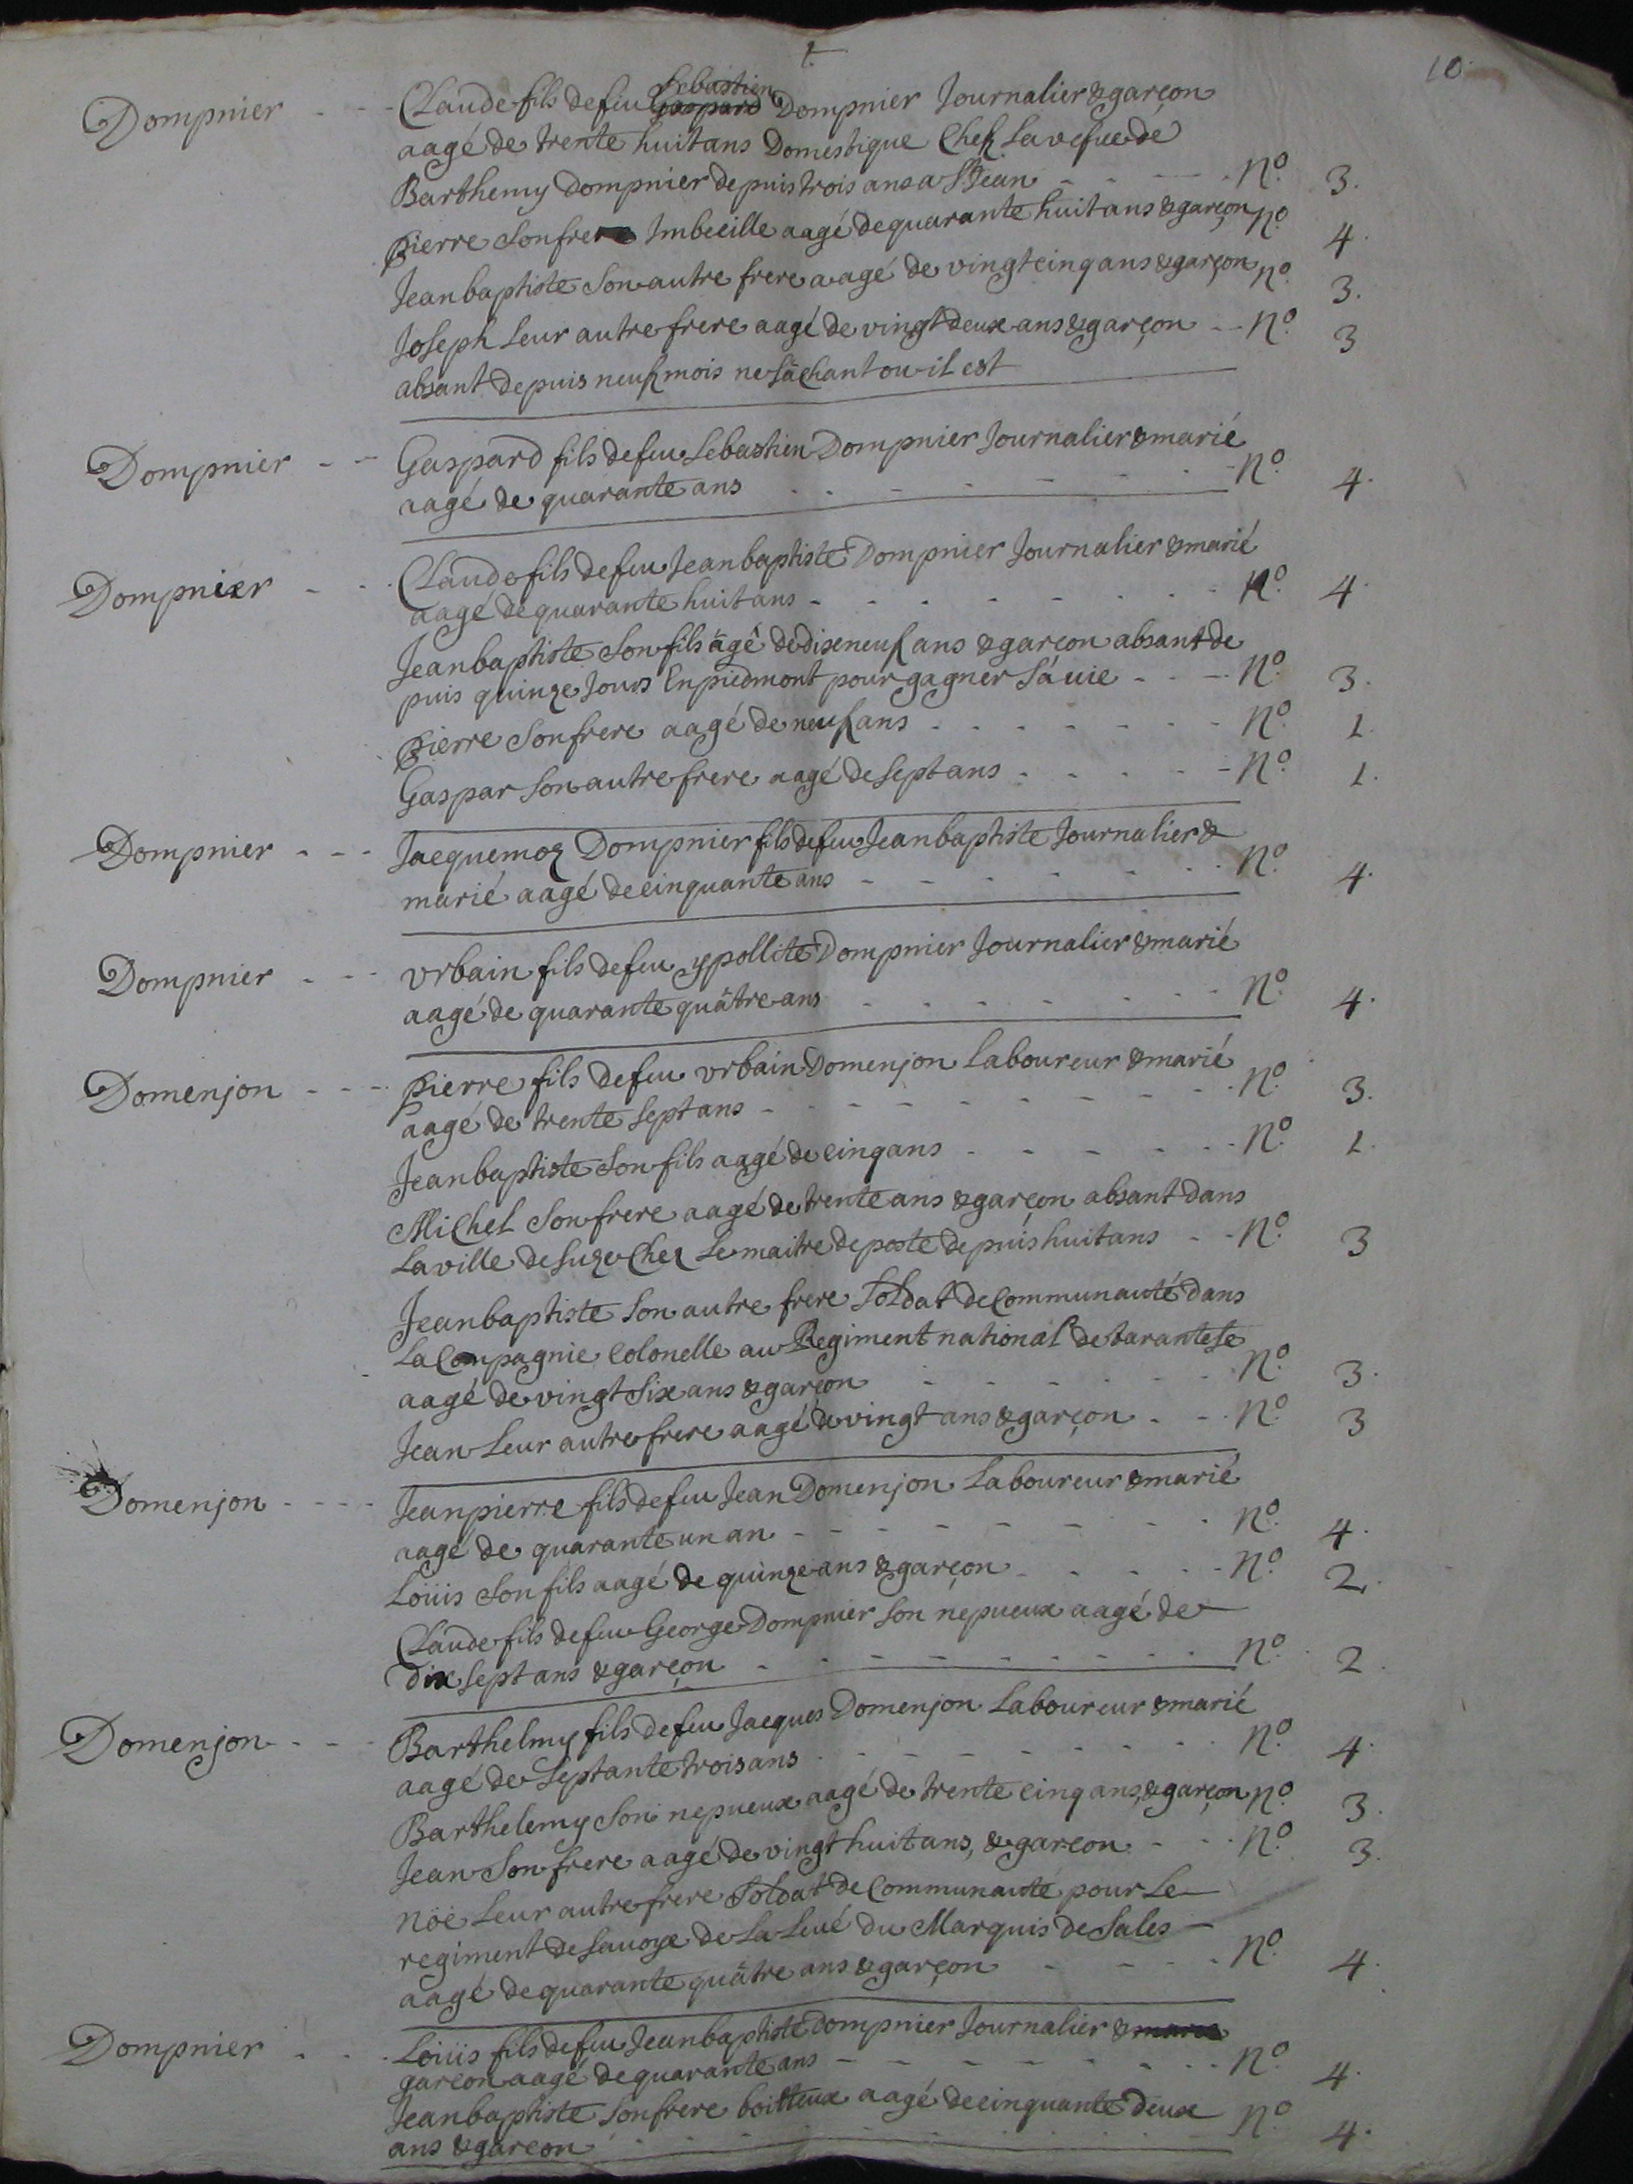 10.
Dompnier - - Claude fils de feu Sebastien Gaspard Dompnier Journalier & garçon
aagé de trente huit ans Domestique Chez La vefue de
Barthemy Dompnier depuis trois ans a St Jean - - - - No. 3.
pierre Son frere Imbecille aagé de quarante huit ans & garçon No. 4.
Jeanbaptiste Son autre frere aagé de vingt cinq ans & garçon No. 3.
Joseph Leur autre frere aagé de vingt deux ans & garçon - - No. 3
absant depuis neuf mois ne Sâchant ou il est
Dompnier - - Gaspard fils de feu Sebastien Dompnier Journalier & marié
aagé de quarante ans - - - - - - No. 4.
Dompnier - - Claude fils de feu Jeanbaptiste Dompnier Journalier & marié
aagé de quarante huit ans - - - - - - No. 4.
Jeanbaptiste Son fils âgé de dixeneuf ans & garçon absant de
puis quinze Jours En piedmont pour gagner Sá uie - - - No. 3.
pierre Son frere aagé de neuf ans - - - - - - No. 1.
Gaspar Son autre frere aagé de Sept ans - - - - - No. 1.
Dompnier - - - Jacquemoz Dompnier fils de feu Jeanbaptiste Journalier &
marié aagé de cinquante ans - - - - - - No. 4.
Dompnier - - - vrbain fils de feu ypollite Dompnier Journalier & marié
aagé de quarante quâtre ans - - - - - - No. 4.
Domenjon - - - pierre fils de feu vrbain Domenjon Laboureur & marié
aagé de trente Sept ans - - - - - - - No. 3.
Jeanbaptiste Son fils aagé de cinq ans - - - - - No. 1.
Michel Son frere aagé de trente ans & garçon absant dans
La ville de Suze Chez Le maitre de poste depuis huit ans - - No. 3
Jeanbaptiste Son autre frere Soldat de Communauté dans
La Compagnie Colonelle au Regiment national de tarantese
aagé de vingt Six ans & garçon - - - - - - No. 3.
Jean Leur autre frere aagé de vingt ans & garçon - - No. 3
Domenjon - - - - Jeanpierre fils de feu Jean Domenjon Laboureur & marié
aagé de quarante un an - - - - - - - No. 4.
Loüis Son fils aagé de quinze ans & garçon - - - - - No. 2.
Claude fils de feu George Dompnier Son nepueux aagé de
dix Sept ans & garçon - - - - - - - - No. 2.
Domenjon - - - Barthelmy fils de feu Jacques Domenjon Laboureur & marié
aagé de Septante trois ans - - - - - - - No. 4.
Barthelemy Son nepueux aagé de trente cinq ans, & garçon No. 3.
Jean Son frere aagé de vingt huit ans, & garçon - - - No. 3.
Nöé Leur autre frere Soldat de Communauté pour Le
regiment de Sauoye de La Leué du Marquis de Sales
aagé de quarante quâtre ans & garçon - - - - No. 4.
Dompnier - - - Loüis fils de feu Jeanbaptiste Dompnier Journalier & marié
garcon aagé de quarante ans - - - - - - - No. 4.
Jeanbaptiste Son frere boitteux aagé de cinquante deux No. 4.
ans & garcon - - - - - - -